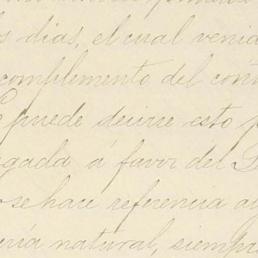 s dias, el cual venia
complemento del con
Se puede decirse esto p
gada á favor del
o se hace referencia a
ería natural, siempre